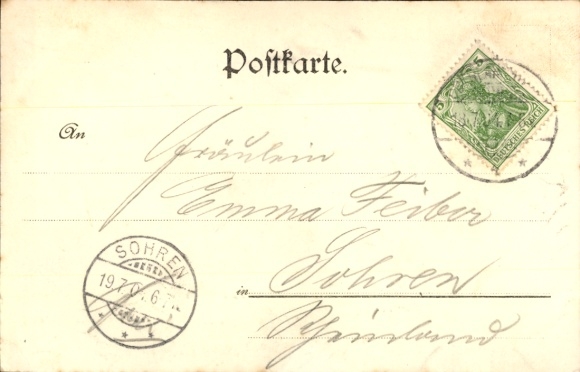 Postkarte.
An
Fräulein
Emma Feiber
in Sohren
Rheinland
SOHREN
19.7.0
DEUTSCHES REICH